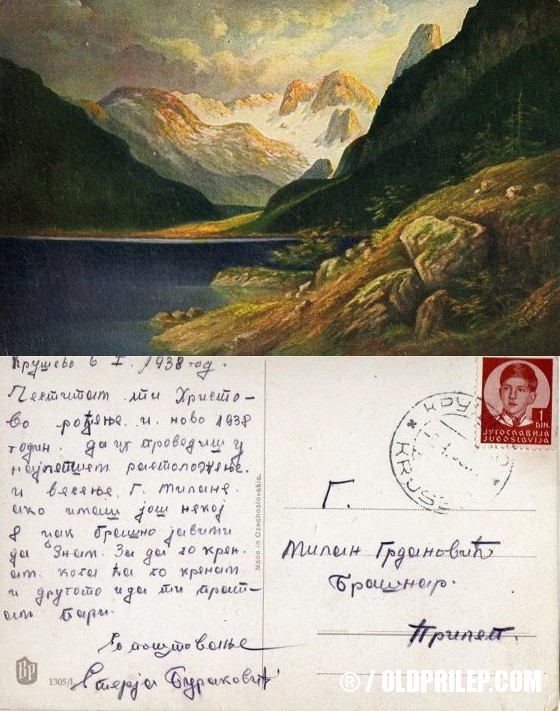 Крушево 6 I. 1938 год.
Честитам ти Христо-
во рођење и ново 1938
годин. да их проведиш у
најлепшем расположење
и весење. Г. Милане
ако имаш још некој
јавити
да знам. За да го крен-
ам. кога ћа го кренам
и другото и да ти прат-
ам пари.
Со поштовање
Стерја Бураковић
Made in Czechoslovakia.
BP
1305/I
1
DIN.
ЈУГОСЛАВИЈА
JUGOSLAVIJA
Г.
Милан Грдановић
Брашнар.
Прилеп.
® / OLDPRILEP.COM